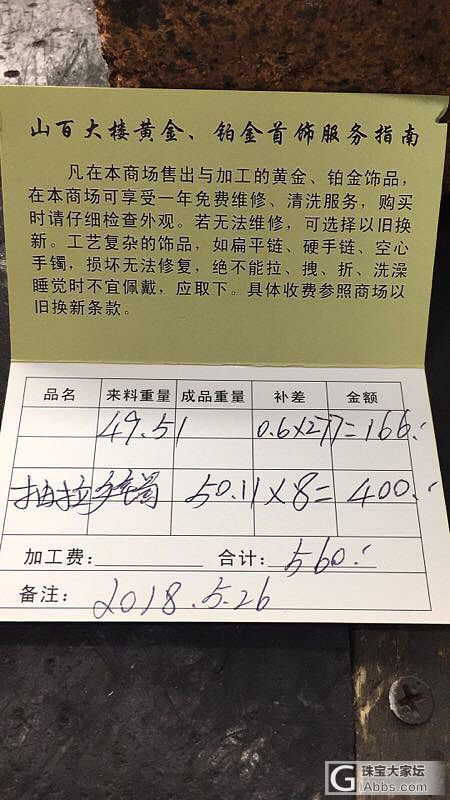 山百大楼黄金、铂金首饰服务指南
凡在本商场售出与加工的黄金、铂金饰品，
在本商场可享受一年免费维修、清洗服务，购买
时请仔细检查外观。若无法维修，可选择以旧换
新。工艺复杂的饰品，如扁平链、硬手链、空心
手镯，损坏无法修复，绝不能拉、拽、折、洗澡
睡觉时不宜佩戴，应取下。具体收费参照商场以
旧换新条款。
品名 来料重量 成品重量 补差 金额
49.51 0.6×277=166.
抽拉手镯 50.11×8= 400.
加工费： 合计：560.
备注：2018.5.26
珠宝大家坛
GiAbbs.com